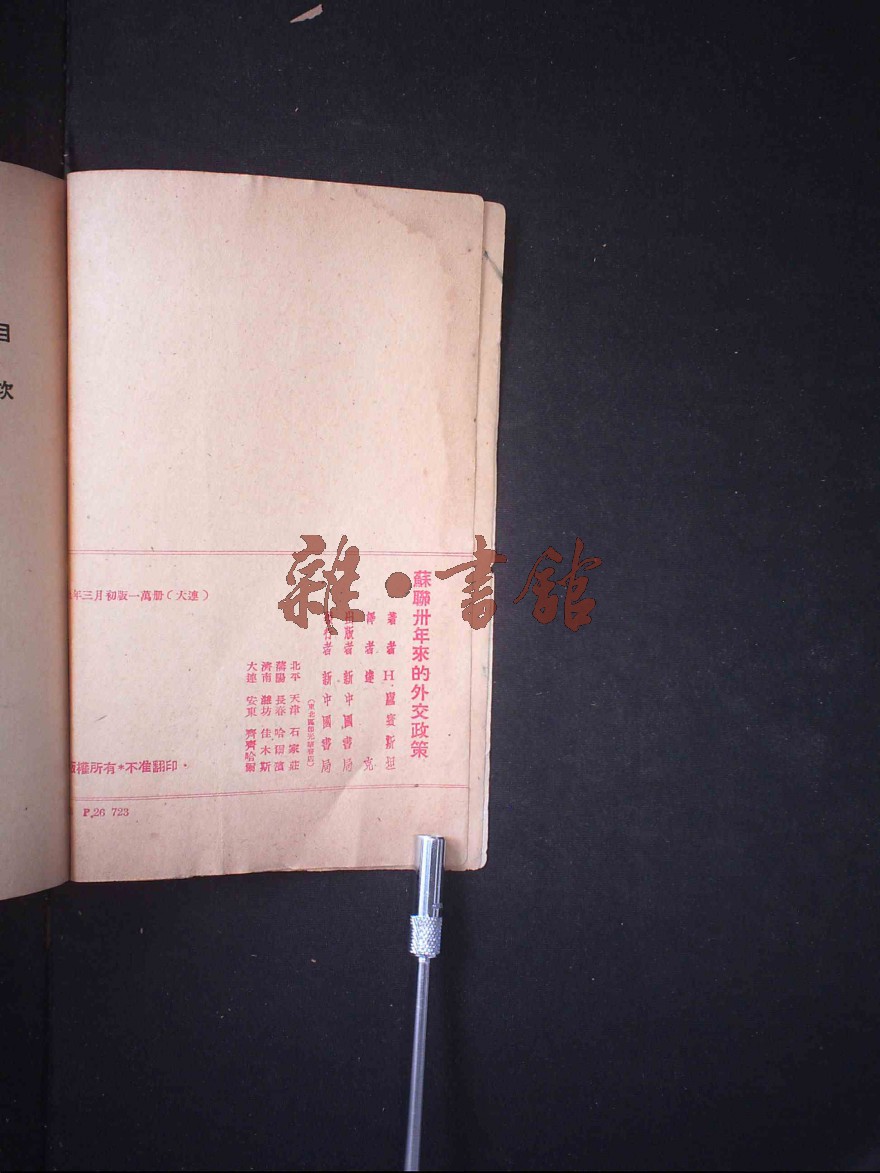 目 次
雜·書館
蘇聯卅年來的外交政策
著者 H.盧賓斯坦
譯者 達克
出版者 新中國書局
發行者 新中國書局
北平 天津 石家莊
瀋陽 長春 哈爾濱
濟南 濰坊 佳木斯
大連 安東 齊齊哈爾
年三月初版一萬册(大連)
版權所有*不准翻印·
P.26 723